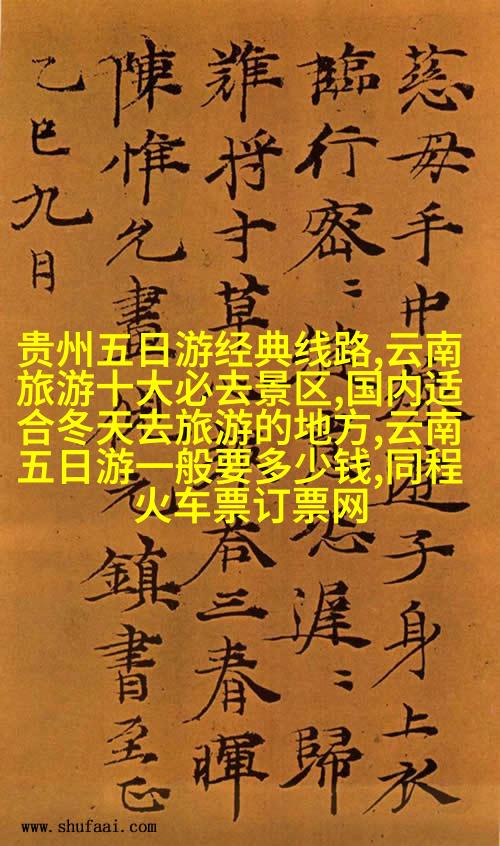 慈母手中子身上衣
臨行密〻恐遲〻歸
難将寸草三春暉
陳惟允畫鎮書至正
乙巳九月
贵州五日游经典线路,云南
旅游十大必去景区,国内适
合冬天去旅游的地方,云南
五日游一般要多少钱,同程
火车票订票网
www.shufaai.com